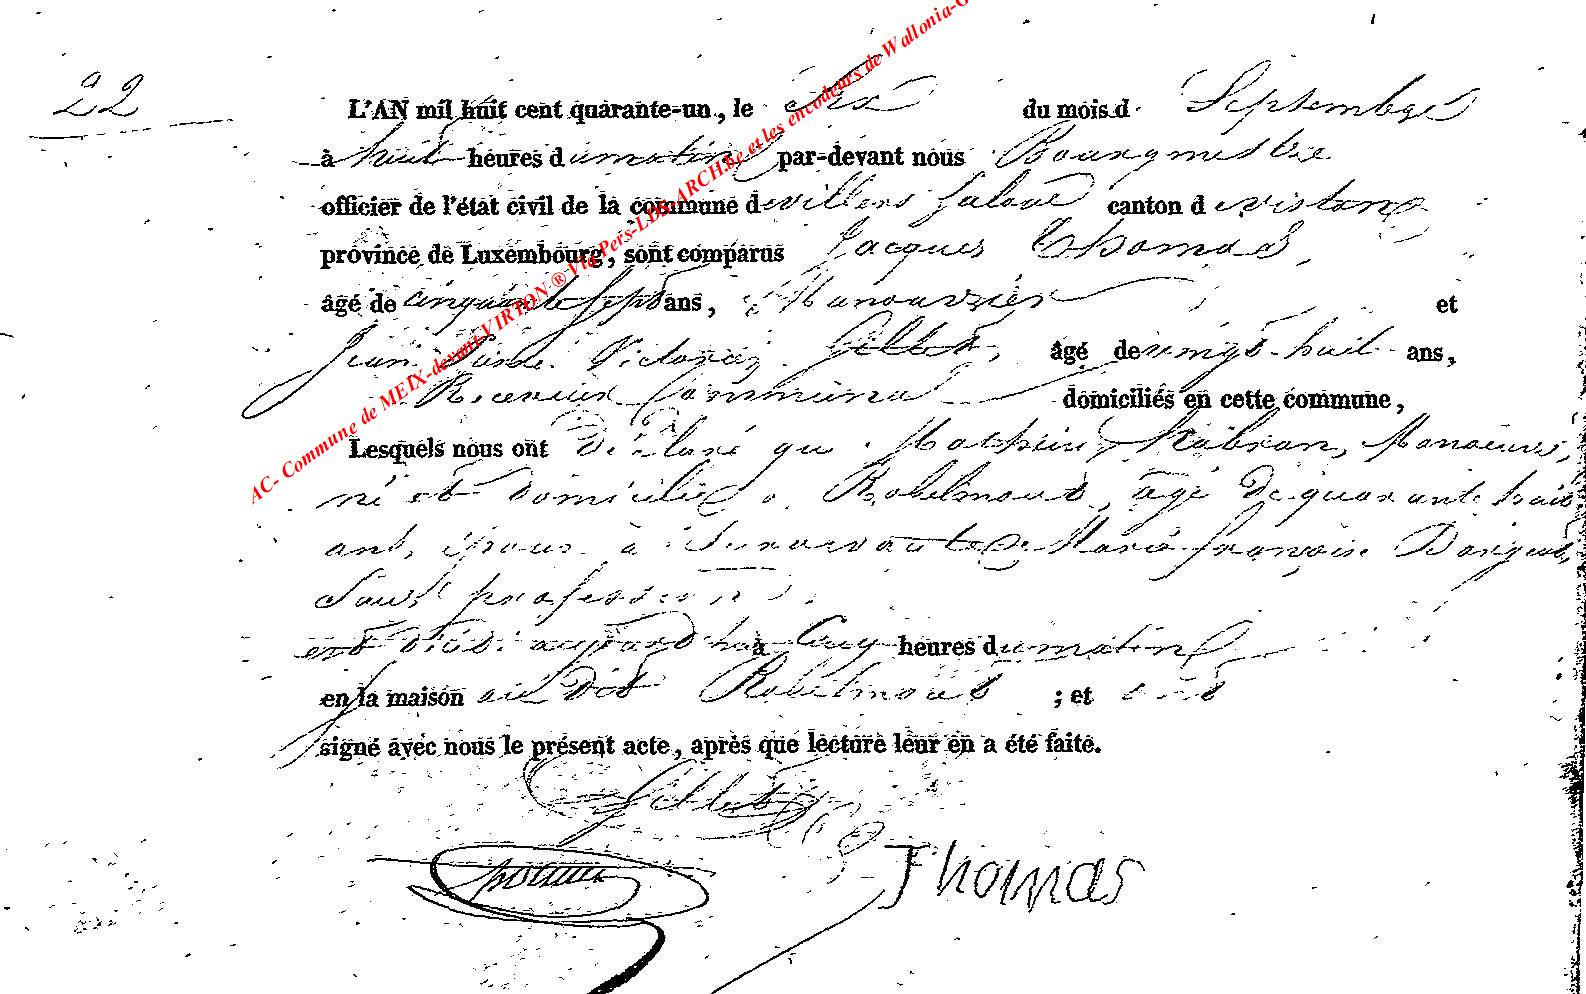 22
L'AN mil huit cent quarante-un, le six du mois d. Septembre
à huit heures du matin par-devant nous Bourgmestre
officier de l'état civil de la commune de villers la loue canton de virton
province de Luxembourg, sont comparus Jacques Thomas,
âgé de cinquante sept ans, Manouvrier et
Jean Victoriez Gillet, âgé de vingt-huit ans,
Receveur Communal domiciliés en cette commune,
Lesquels nous ont déclaré que Mathieu Habran, Manoeuvre,
né et domicilié a Robelmont, âgé de quarante huit
ans, époux à survivante de Marie françoise Dorigeat,
Sans profession.
est décédé aujourd'hui à Cinq heures du matin
en la maison au dit Robelmont ; et ont
signé avec nous le présent acte, après que lecture leur en a été faite.
Gillet
Thomas
AC- Commune de MEIX-devant-VIRTON ® Via Pers-LDS-ARCH.be et les encodeurs de Wallonia-G